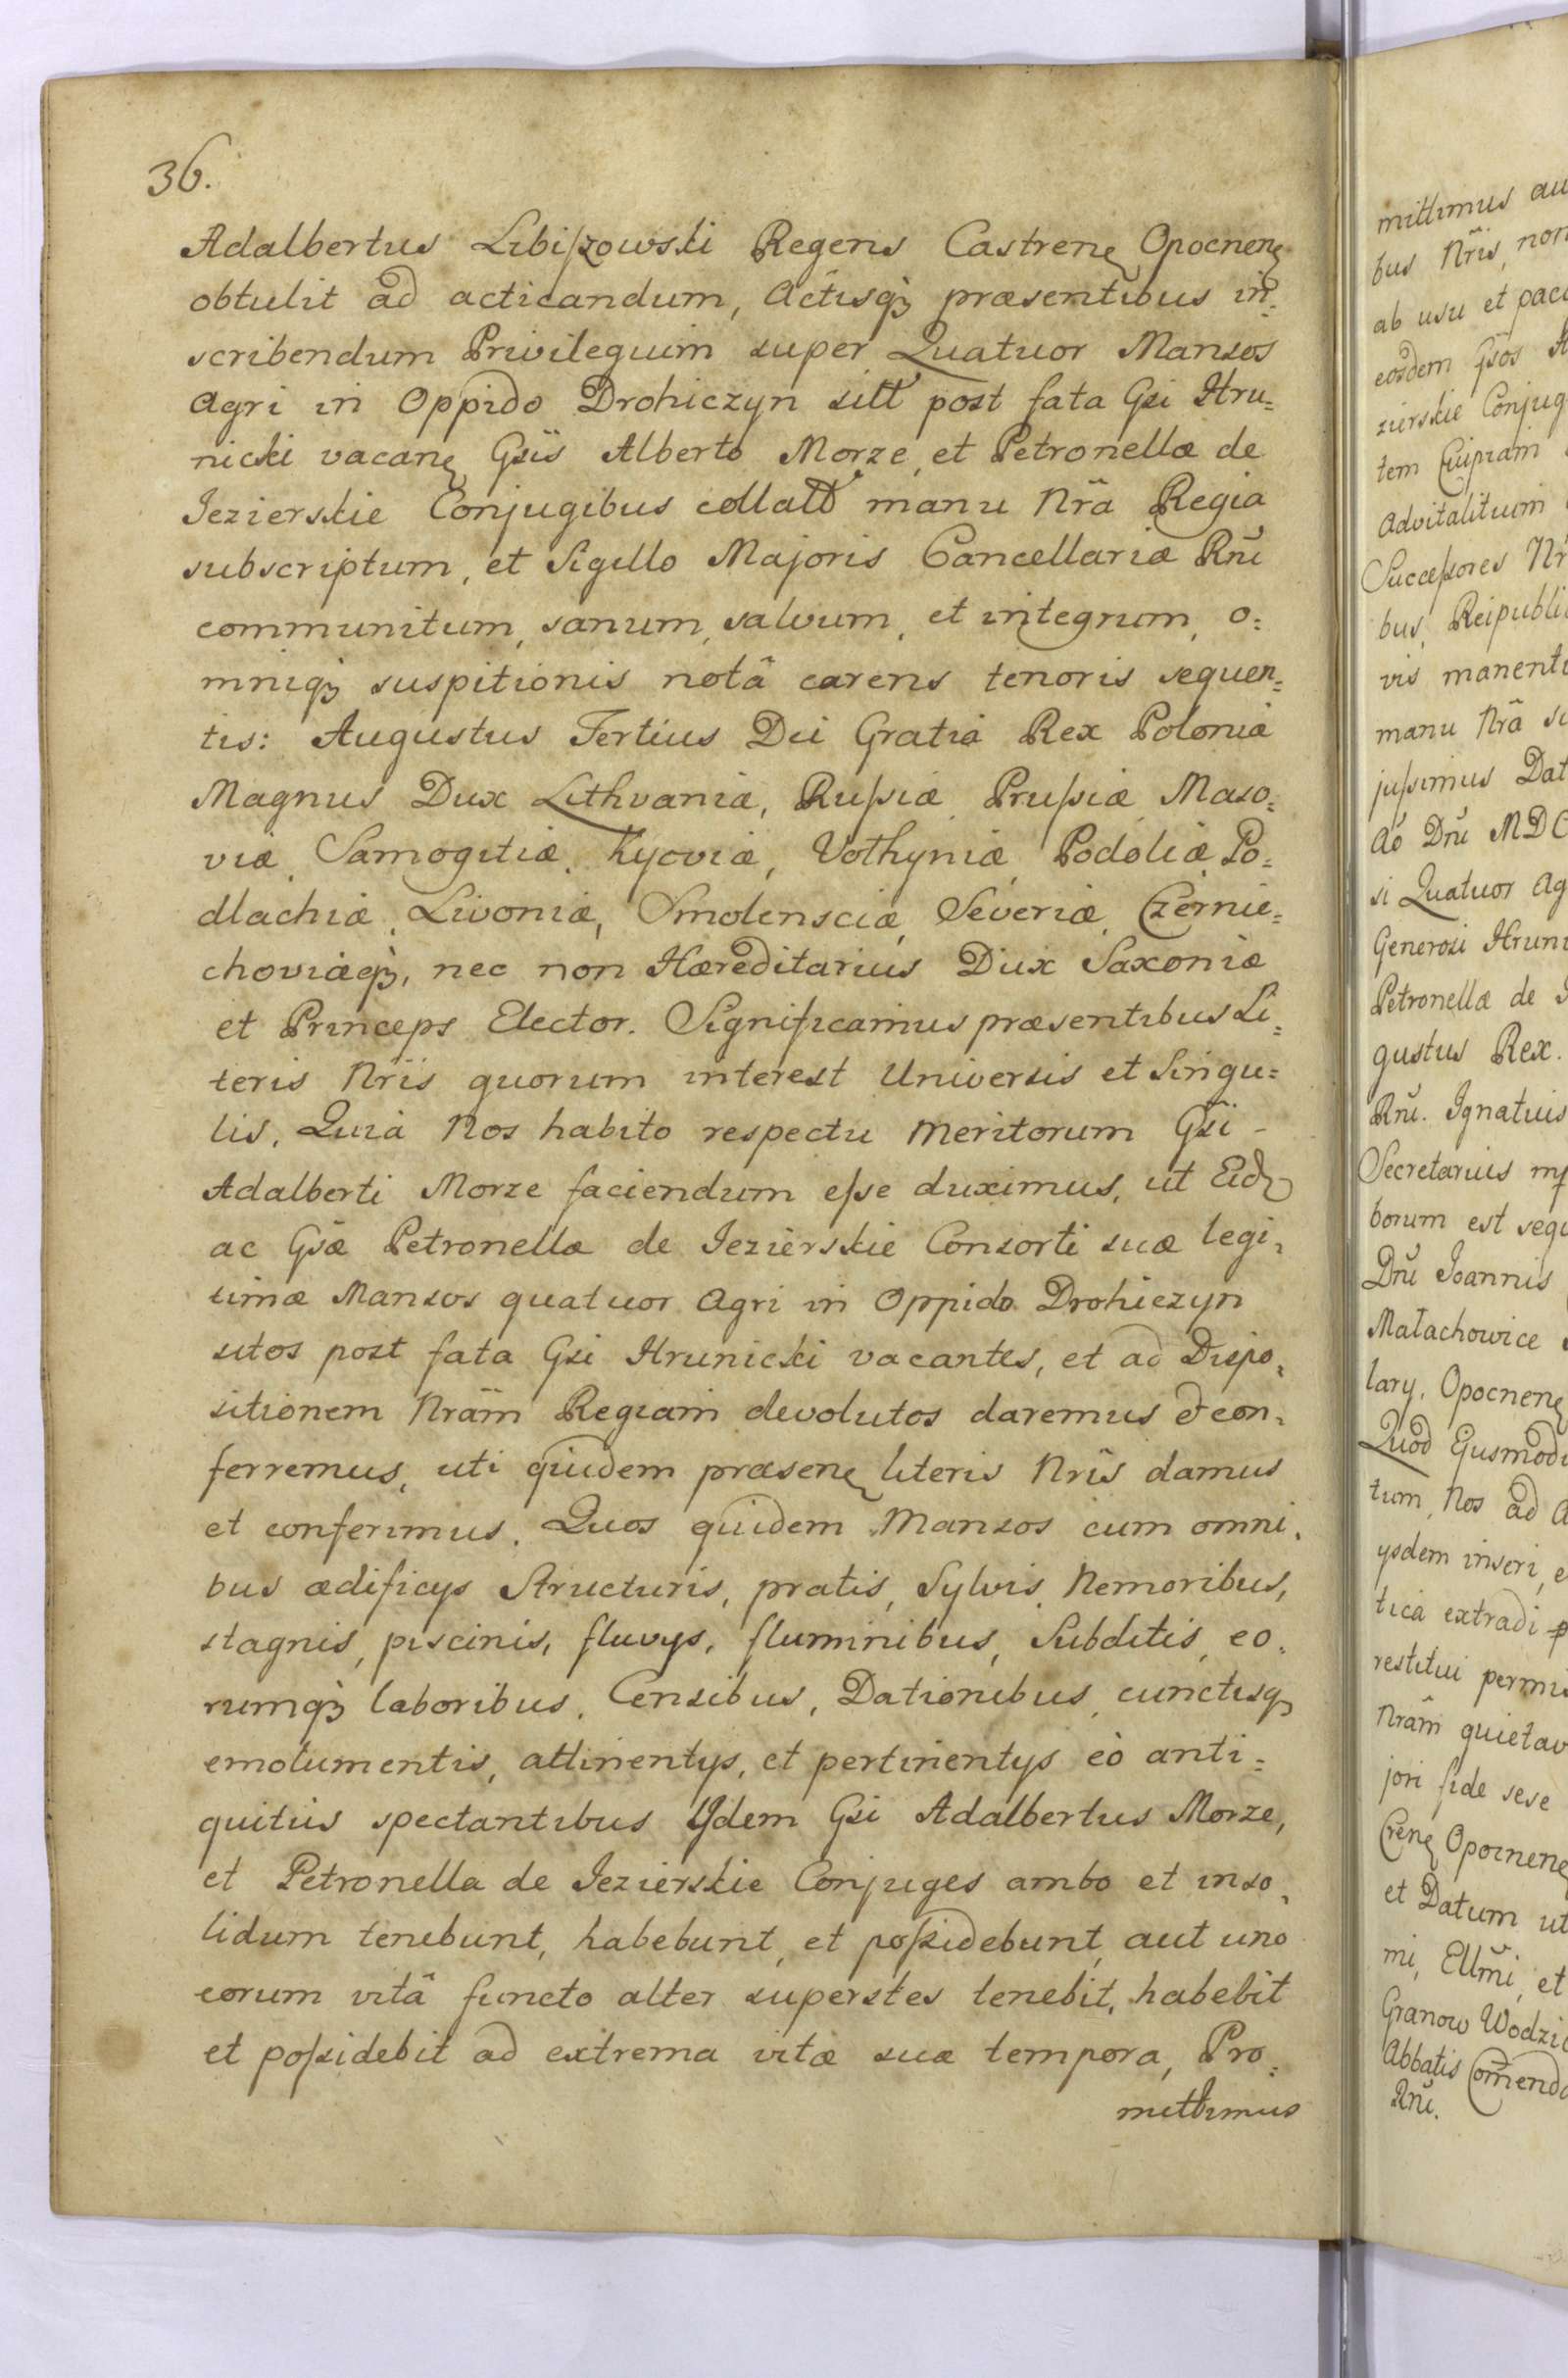 36.
Adalbertus Libiszowski Regens Castren Opocnen
obtulit ad acticandum, Actisq praesentibus in=
scribendum Privilegium super Quatuor Mansos
Agri in Oppido Drohiczyn sitt post fata Gsi Hru=
nicki vacan Gsis Alberto Morze, et Petronellæ de
Jezierskie Conjugibus collatt manu Nrã Regia
subscriptum, et Sigillo Majoris Cancellariæ Rni
communitum, sanum, salvum, et integrum, o=
mniq suspitionis notâ carens tenoris sequen=
tis: Augustus Tertius Dei Gratia Rex Poloniæ
Magnus Dux Lithvaniæ, Russiæ, Prussiæ, Maso=
viæ, Samogitiæ, Kyoviæ, Volhyniæ, Podoliæ, Po=
dlachiæ, Livoniæ, Smolensciæ, Severiæ, Czernie=
choviæq, nec non Hæreditarius Dux Saxoniæ
et Princeps Elector. Significamus præsentibus Li=
teris Nris quorum interest Universis et Singu=
lis, Quia Nos habito respectu meritorum Gsi -
Adalberti Morze faciendum esse duximus, ut Eid
ac Gsæ Petronellæ de Jezierskie Consorti suæ legi=
timæ Mansos quatuor Agri in Oppido Drohiczyn
sitos post fata Gsi Hrunicki vacantes, et ad Dispo=
sitionem Nrãm Regiam devolutos daremus et con=
ferremus, uti quidem præsen literis Nris damus
et conferimus. Quos quidem Mansos cum omni=
bus ædificys Structuris, pratis, Sylvis, Nemoribus,
stagnis, piscinis, fluvys, fluminibus, Subditis, eo=
rumq laboribus, Censibus, Dationibus, cunctisq
emolumentis, attinentys, et pertinentys eò anti=
quitus spectantibus Ydem Gsi Adalbertus Morze,
et Petronella de Jezierskie Conjuges ambo et inso=
lidum tenebunt, habebunt, et possidebunt, aut uno
eorum vitâ functo alter superstes tenebit, habebit
et possidebit ad extrema vitæ suæ tempora, Pro=
mittimus
mittimus au
bus Nris, non
ab usu et paci
eosdem Gsos A
zierskie Conjug
tem
Advitalitium
Successores Nr
bus, Reipubli
vis manenti
manu Nrã su
jussimus Dat
Aô Dni MDC
si Quatuor Ag
Generosi Hruni
Petronellæ de J
gustus Rex.
Rni. Ignatius
Secretarius mp
borum est sequ
Dni Joannis
Małachowice
lary, Opocnen
Quod Ejusmodi
tum, Nos ad A
ysdem inseri, e
tica extradi
restitui permis
Nrãm quietav
jori fide sese
Cren Opocnen
et Datum ut
mi, Ellmi, et
Granow Wodzic
Abbatis Comenda
Rni.